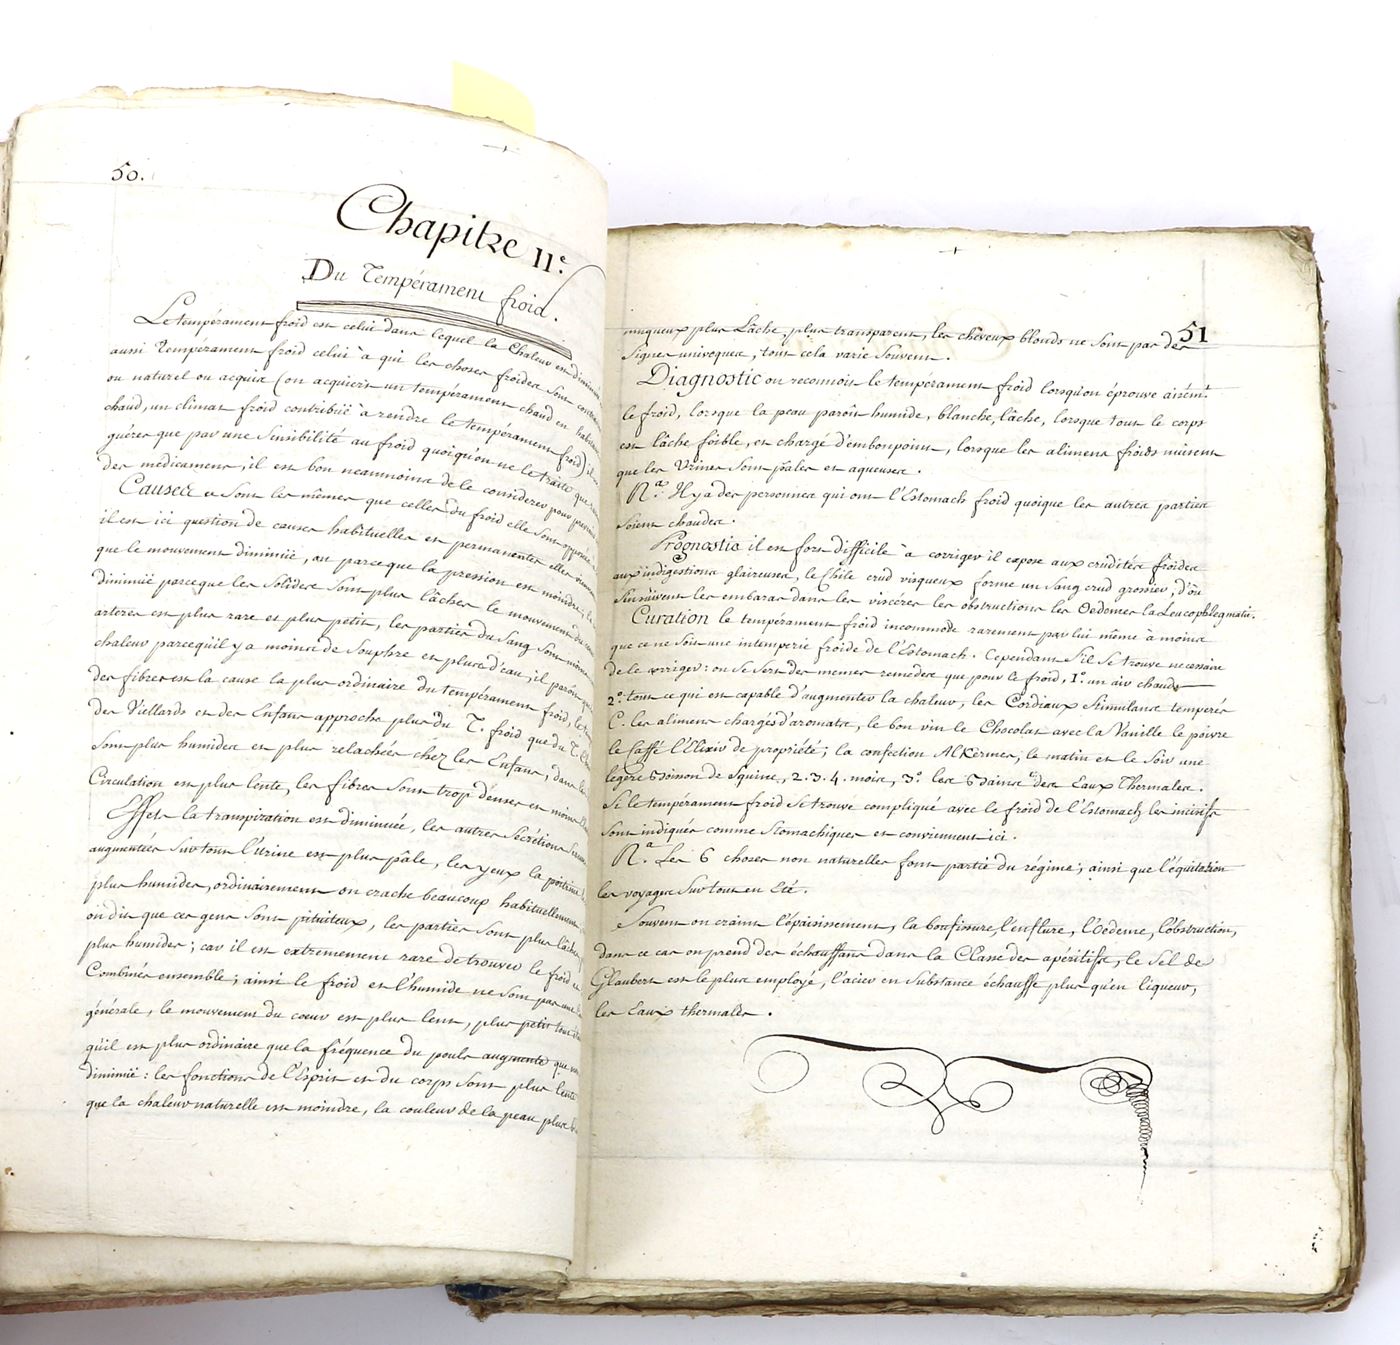 50.
Chapitre II.e
Du Tempérament froid.
Le tempérament froid est celui dans lequel la Chaleur est
aussi Tempérament froid celui à qui les choses froides sont
ou naturel ou acquis (on acquiert un tempérament chaud en
chaud, un climat froid contribüe à rendre le tempérament froid) il
guéres que par une sensibilité au froid quoiqu'on ne le traite que
des médicamens, il est bon neanmoins de le considerer pour
Causes ce sont les mêmes que celles du froid elle sont opposée
il est ici question de causes habituelles et permanentes elles
que le mouvement diminüe, ou parceque la pression est moindre; le
diminüe parceque les solides sont plus lâches le mouvement du
arteres est plus rare et plus petit, les parties du sang sont moins
chaleur parcequ'il y a moins de souphre et plus d'eau; il paroît que
des fibres est la cause la plus ordinaire du tempérament froid, le
des Viellards et des Enfans approche plus du T. froid que du T.
sont plus humides et plus relachées chez les Enfans, dans les
Circulation est plus lente, les fibres sont trop denses et moins
Effets la transpiration est diminuée, les autres Secrétions
augmentées surtout l'urine est plus pâle, les yeux la poitrine
plus humides, ordinairement on crache beaucoup habituellement
on dit que ces gens sont pituiteux, les parties sont plus lâches
plus humides; car il est extremement rare de trouver le froid
Combinés ensemble; ainsi le froid et l'humide ne sont pas une
générale, le mouvement du coeur est plus lent, plus petit
qu'il est plus ordinaire que la fréquence du pouls augmente que
diminüe: les fonctions de l'Esprit et du corps sont plus lente
que la chaleur naturelle est moindre, la couleur de la peau plus
51
muqueux plus Lâche, plus transparent, les chèveux blonds ne sont pas des
signes univoques, tout cela varie souvent.
Diagnostic on reconnoit le tempérament froid lorsqu'on éprouve aisémt
le froid, lorsque la peau paroît humide, blanche, lâche, lorsque tout le corps
est lâche foible, et chargé d'embonpoint, lorsque les alimens froids nuisent
que les Urines sont pâles et aqueuses.
Na. Il y a des personnes qui ont l'Estomach froid quoique les autres parties
soient chaudes.
Prognostic il est fort difficile à corriger il expose aux crudités froides
aux indigestions glaireuses, le Chile crud visqueux forme un sang crud grossier, d'où
s'ensüivent les embaras dans les viscéres les obstructions les Oedemes la Leucophlegmatie.
Curation le tempérament froid incommode rarement par lui même à moins
que ce ne soit une intemperie froide de l'Estomach. Cependant s'il se trouve necessaire
de le corriger: on se sert des memes remedes que pour le froid, 1°. un air chaud
2°. tout ce qui est capable d'augmenter la chaleur, les Cordiaux stimulans temperés
C. les alimens chargés d'aromates, le bon vin le Chocolat avec la Vanille le poivre
le Caffé l'Elixir de propriété; la confection Alkèrmes, le matin et le soir une
legère boisson de Squine, 2. 3. 4. mois, 3°. les bains des Eaux Thermales.
Si le tempérament froid se trouve compliqué avec le froid de l'Estomach les incisifs
sont indiqués comme Stomachiques et conviennent ici.
Na. Les 6 choses non naturelles font partie du régime; ainsi que l'équitation
les voyages surtout en Eté.
Souvent on craint l'épaisissement, la bouffissure, l'enflure, l'Oedeme, l'obstruction,
dans ce cas on prend des échauffans dans la Classe des apéritifs, le Sel de
Glaubert est le plus employé, l'acier en substance échauffe plus qu'en liqueur,
les Eaux thermales.